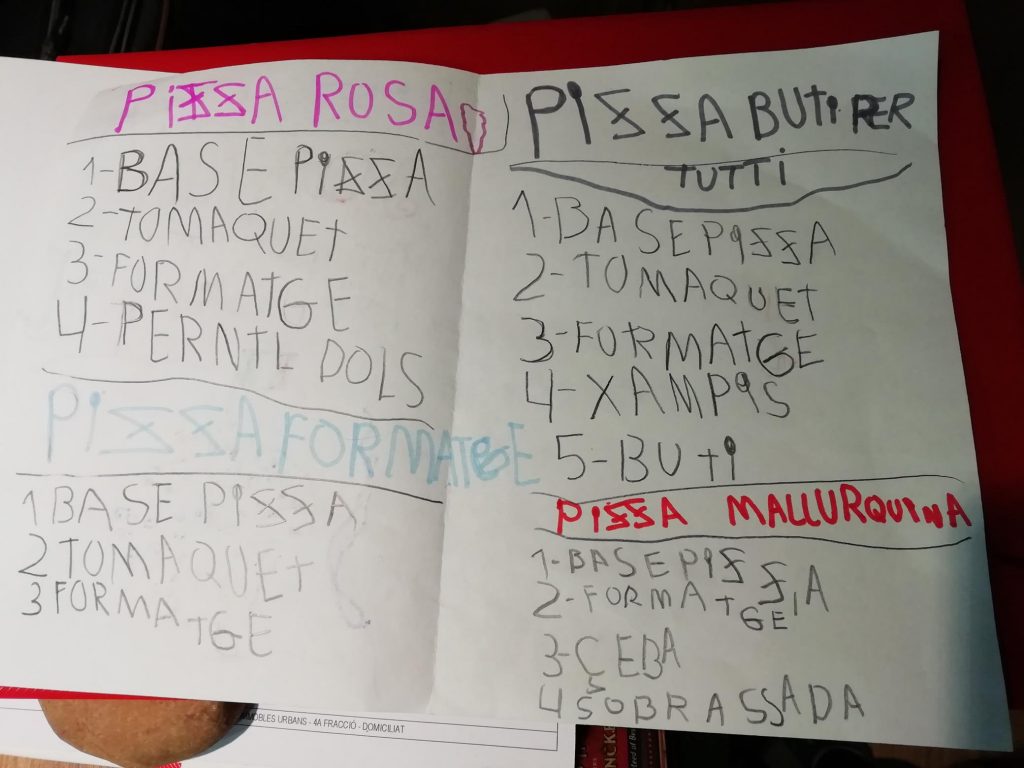 PiZZA ROSA
1-BASE PIZZA
2-TOMAQUET
3-FORMATGE
4-PERNIL DOLS
PiZZA FORMATGE
1 BASE PIZZA
2 TOMAQUET
3 FORMA
TGE
PIZZA BUTi PER
TUTTi
1-BASE PIZZA
2-TOMAQUET
3-FORMATGE
4-XAMPIS
5-BUTI
PIZZA MALLURQUINA
1-BASE PIZZA
2-FORMAT
GE
3-ÇEBA
4 SOBRASSADA
MOBLES URBANS - 4A FRACCIÓ - DOMICILIAT